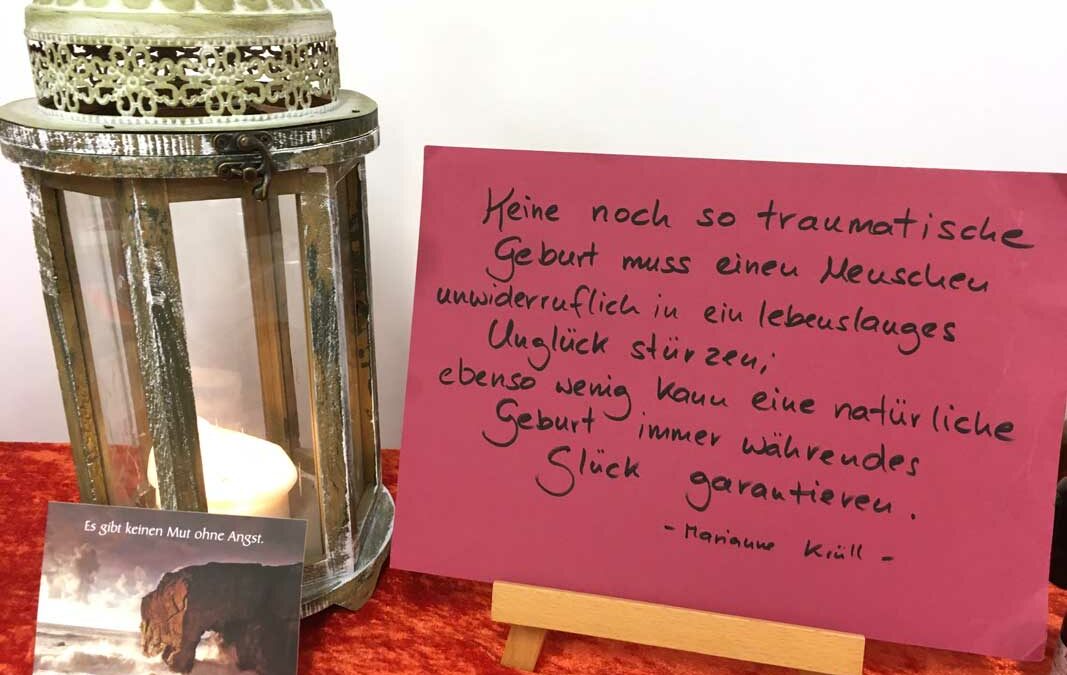 Keine noch so traumatische
Geburt muss einen Menschen
unwiderruflich in ein lebenslanges
Unglück stürzen;
ebenso wenig kann eine natürliche
Geburt immer währendes
Glück garantieren.
- Marianne Krüll -
Es gibt keinen Mut ohne Angst.